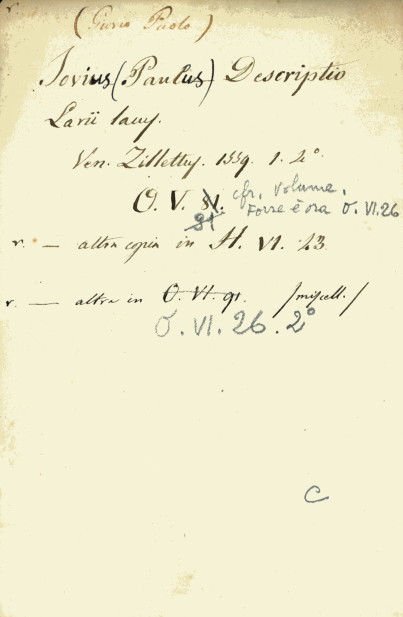 (Giovio Paolo)
Jovius (Paulus) Descriptio
Larii lacus.
Ven. Zillettus. 1559. 1. 4°
O. V. 81. cfr. volume.
91 Forse è ora O. VI. 26
r. — altra copia in H. VI. 23.
r. — altra in O. VI. 91. /miscell./
O. VI. 26. 2°
C